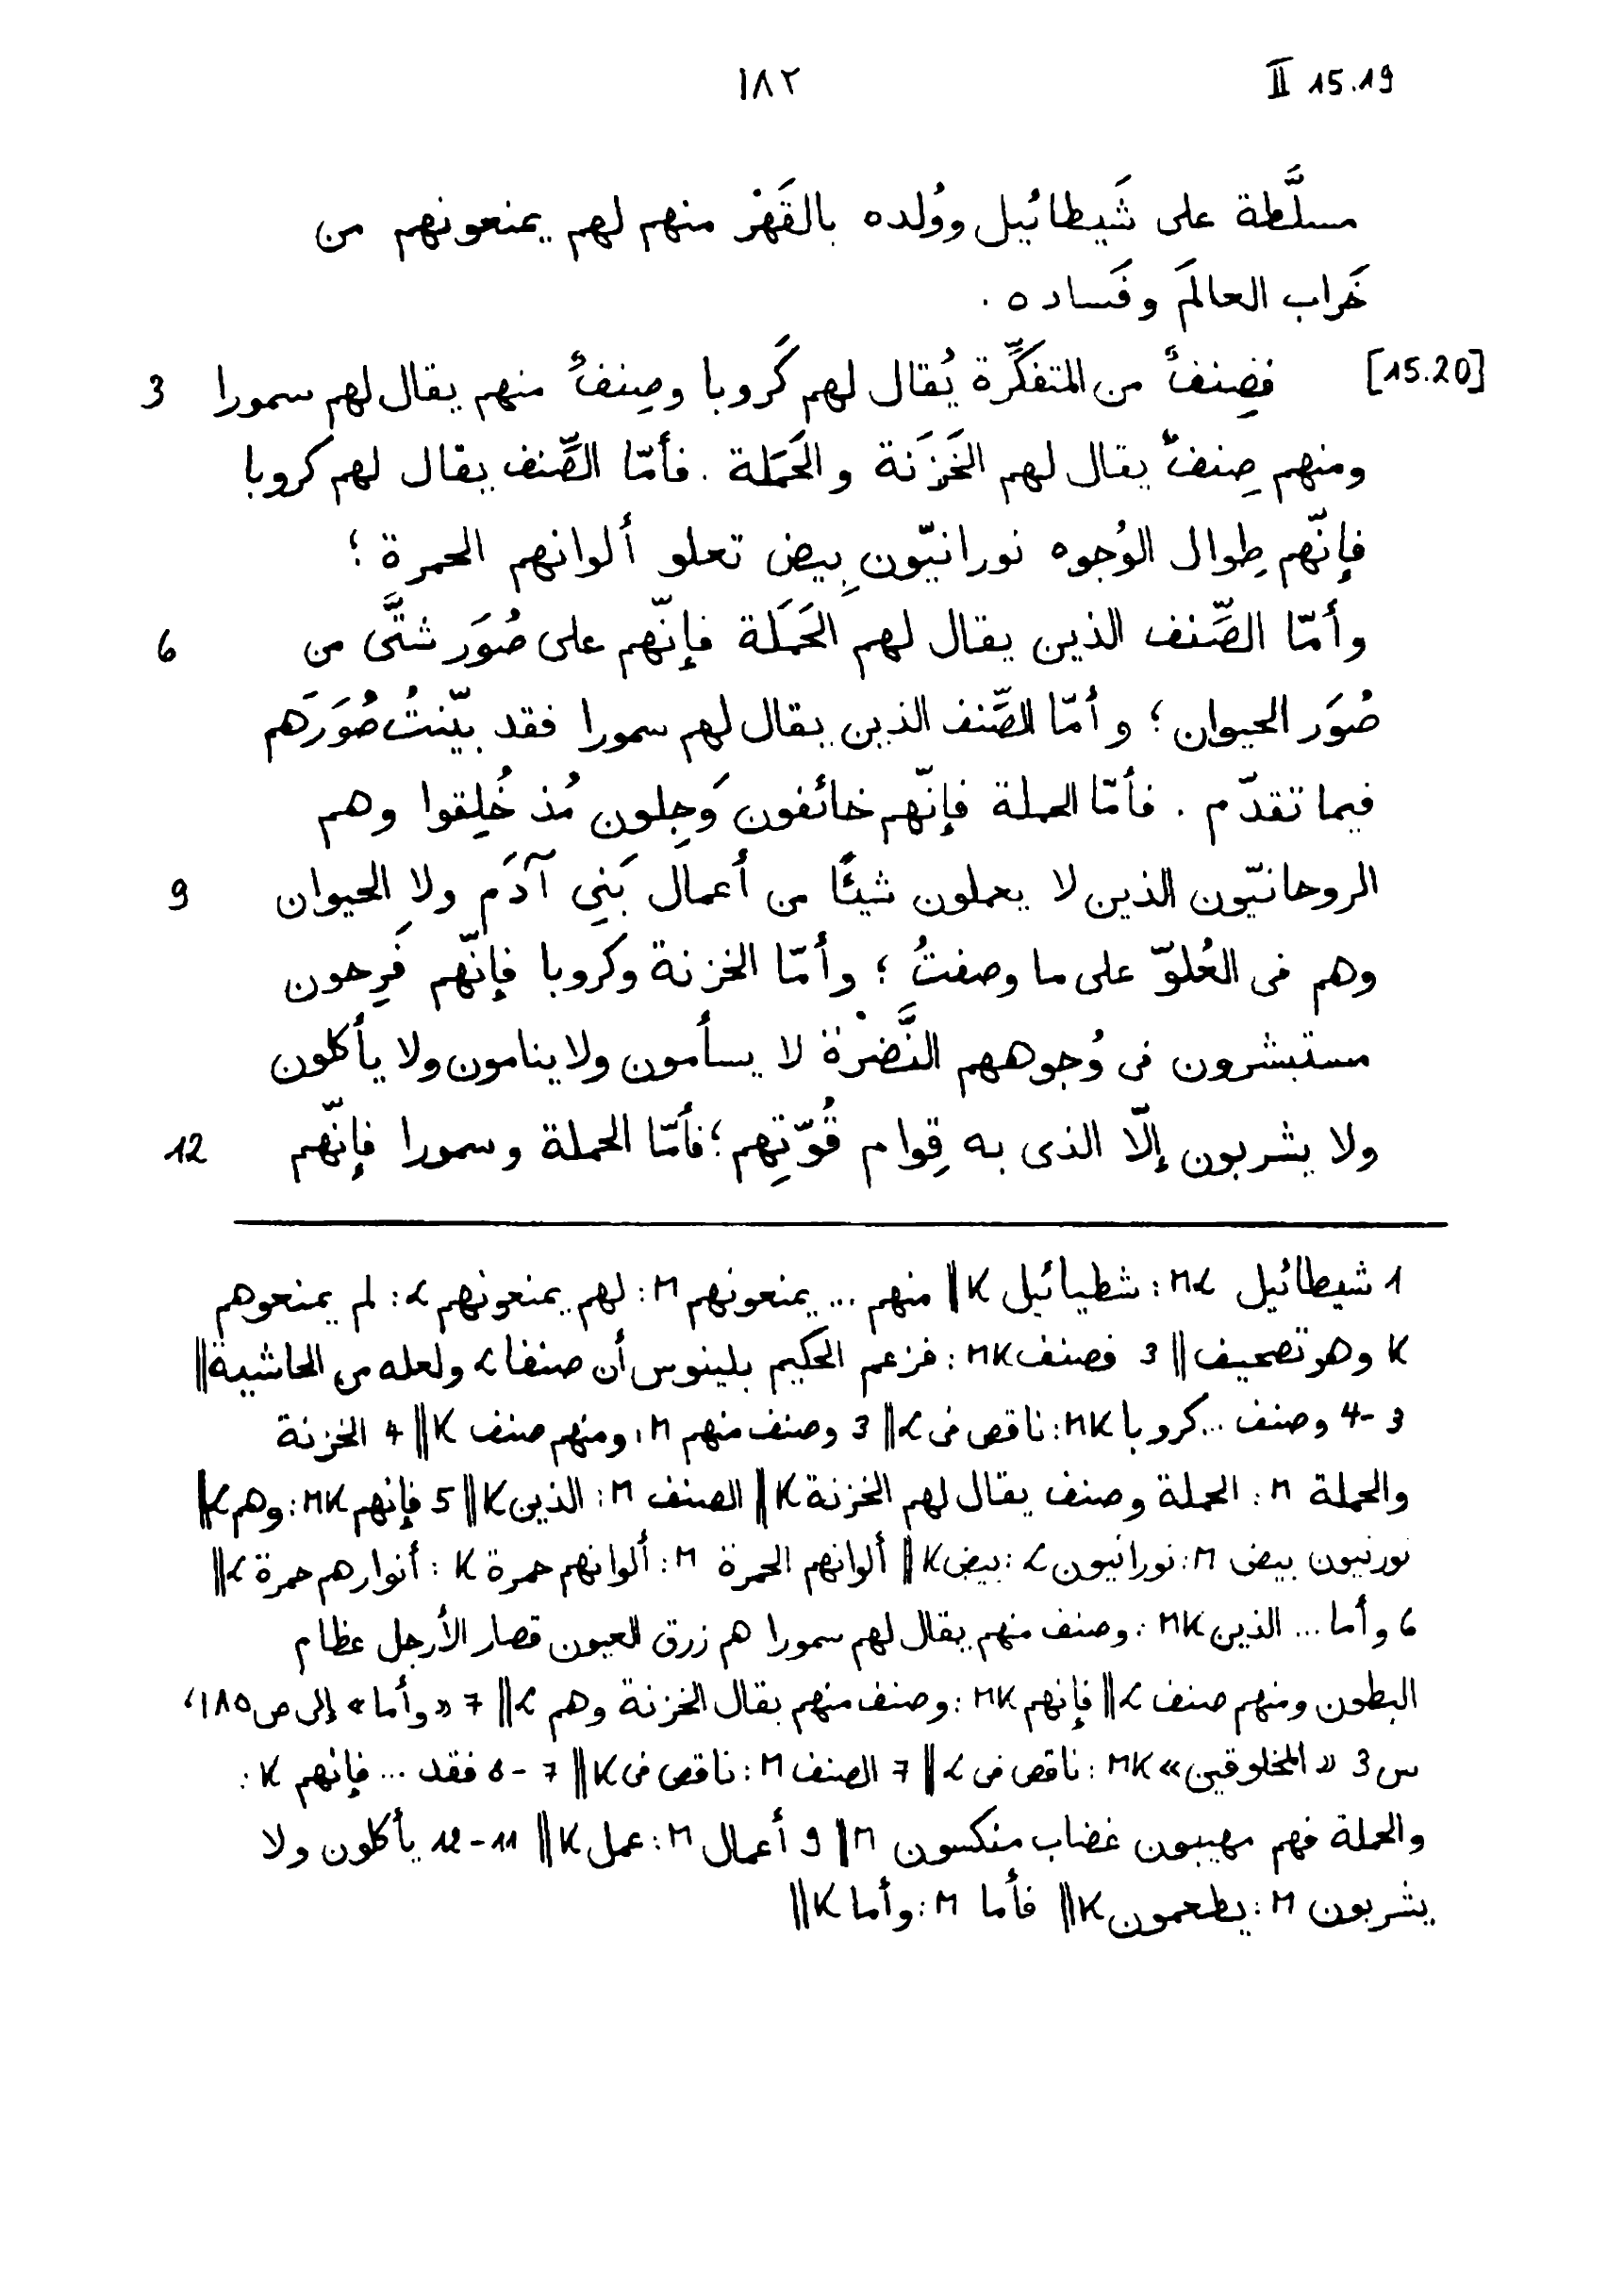 II 15.19 ١٨٢
مسلَّطة على شَيطائيل ووُلده بالقَهْر منهم لهم يمنعونهم من
خَراب العالَم وفَساده .
[15.20] فصِنفٌ من المتفكِّرة يُقال لهم كَروبا وصِنفٌ منهم يقال لهم سمورا 3
ومنهم صِنفٌ يقال لهم الخَزَنة والحَمَلة . فأمّا الصِّنف يقال لهم كروبا
فإنّهم طِوال الوُجوه نورانيّون بِيض تعلو ألوانهم الحمرة ؛
وأمّا الصِّنف الذين يقال لهم الحَمَلة فإنّهم على صُوَر شتَّى من 6
صُوَر الحيوان ؛ وأمّا الصِّنف الذين يقال لهم سمورا فقد بيّنتُ صُوَرَهم
فيما تقدّم . فأمّا الحملة فإنّهم خائفون وَجِلون مُذ خُلِقوا وهم
الروحانيّون الذين لا يعملون شيئًا من أعمال بَنِي آدَم ولا الحيوان 9
وهم فى العُلوّ على ما وصفتُ ؛ وأمّا الخزنة وكروبا فإنّهم فَرِحون
مستبشرون فى وُجوههم النَّضْرة لا يسأمون ولا ينامون ولا يأكلون
ولا يشربون إلّا الذى به قِوام قُوّتِهم ؛ فأمّا الحملة وسمورا فإنّهم 12
1 شيطائيل ML : شطيائيل K || منهم ... يمنعونهم M : لهم يمنعونهم L : لم يمنعوهم
K وهو تصحيف || 3 فصنف MK : فزعم الحكيم بلينوس أن صنفا L ولعله من الحاشية ||
3-4 وصنف ... كروبا MK : ناقص فى L || 3 وصنف منهم M : ومنهم صنف K || 4 الخزنة
والحملة M : الحملة وصنف يقال لهم الخزنة K || الصنف M : الذين K || 5 فإنهم MK : وهم L ||
نورنيون بيض M : نورانيون L : بيض K || ألوانهم الحمرة M : ألوانهم حمرة K : أنوارهم حمرة L ||
6 وأما ... الذين MK : وصنف منهم يقال لهم سمورا هم زرق العيون قصار الأرجل عظام
البطون ومنهم صنف L || فإنهم MK : وصنف منهم بقال الخزنة وهم L || 7 «وأما» إلى ص ١٨٥،
س 3 «المخلوقين» MK : ناقص فى L || 7 الصنف M : ناقص فى K || 7-8 فقد ... فإنهم K :
والحملة فهم مهيبون غضاب منكسون M || 9 أعمال M : عمل K || 11-12 يأكلون ولا
يشربون M : يطعمون K || فأما M : وأما K ||